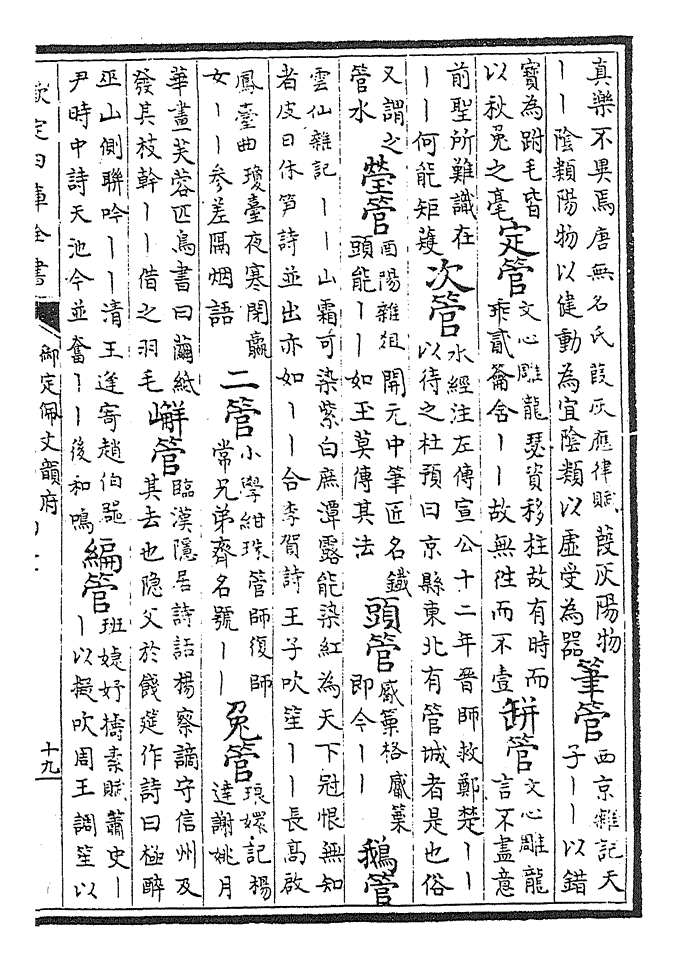 真樂不異焉唐無名氏葭灰應律賦葭灰陽物
丨丨陰類陽物以健動為宜陰類以虛受為器
筆管
西京雜記天
子丨丨以錯
寶為跗毛皆
以秋兔之毫
定管
文心雕龍瑟資移柱故有時而
乖貳籥含丨丨故無往而不壹
缾管
文心雕龍
言不盡意
前聖所難識在
丨丨何能矩矱
次管
水經注左傳宣公十二年晉師救鄭楚丨丨
以待之杜預曰京縣東北有管城者是也俗
又謂之
管水
瑩管
酉陽雜俎開元中筆匠名鐵
頭能丨丨如玉莫傳其法
頭管
觱篥格觱篥
即今丨丨
鵝管
雲仙雜記丨丨山霜可染紫白庶潭露能染紅為天下冠恨無知
者皮日休笋詩並出亦如丨丨合李賀詩王子吹笙丨丨長髙啟
鳳臺曲瓊臺夜寒閉嬴
女丨丨參差隔烟語
二管
小學紺珠管師復師
常兄弟齊名號丨丨
兔管
琅嬛記楊
達謝姚月
華畫芙蓉匹鳥書曰繭紙
發其枝幹丨丨借之羽毛
嶰管
臨漢隱居詩話楊察謫守信州及
其去也隐父於餞筵作詩曰極醉
巫山側聯吟丨丨清王逢寄趙伯噐
尹時中詩天池今並奮丨丨後和鳴
編管
班婕妤擣素賦蕭史丨
丨以擬吹周王調笙以
欽定四庫全書
御定佩文韻府
十九